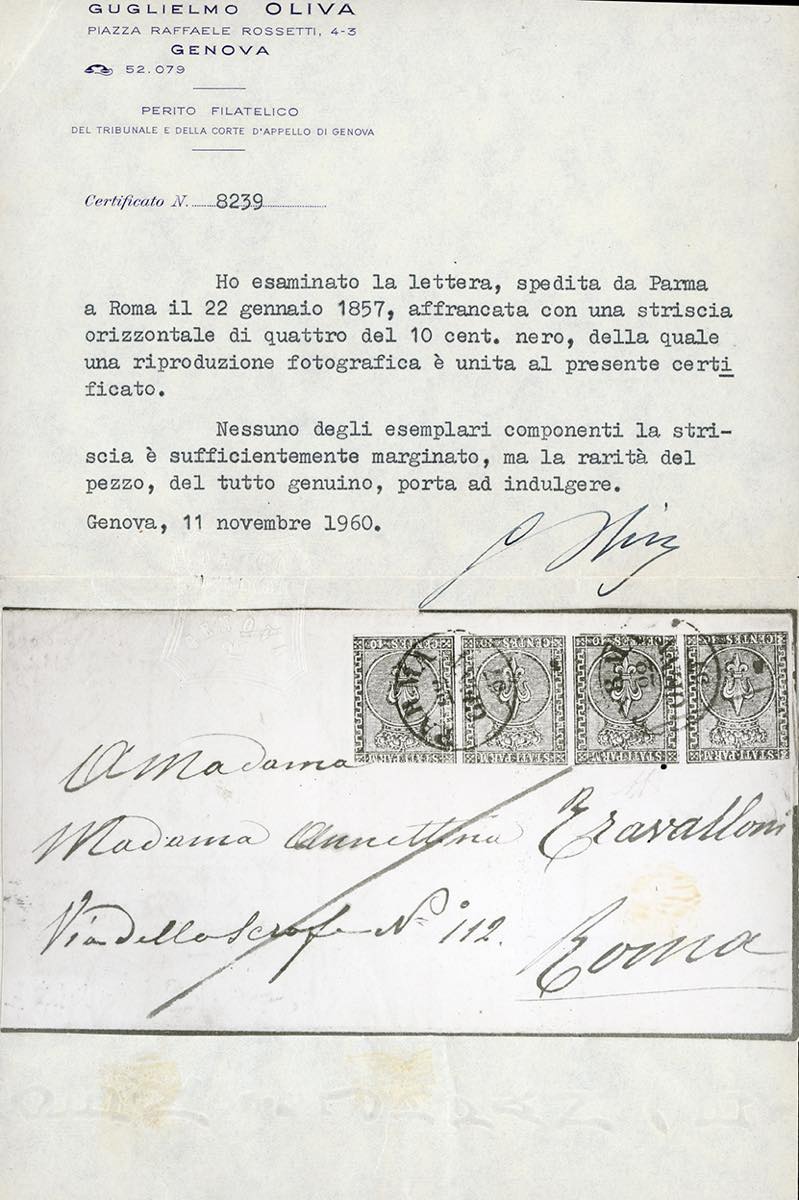 GUGLIELMO OLIVA
PIAZZA RAFFAELE ROSSETTI, 4-3
GENOVA
52.079
PERITO FILATELICO
DEL TRIBUNALE E DELLA CORTE D'APPELLO DI GENOVA
Certificato N. 8239
Ho esaminato la lettera, spedita da Parma
a Roma il 22 gennaio 1857, affrancata con una striscia
orizzontale di quattro del 10 cent. nero, della quale
una riproduzione fotografica è unita al presente certi
ficato.
Nessuno degli esemplari componenti la stri-
scia è sufficientemente marginato, ma la rarità del
pezzo, del tutto genuino, porta ad indulgere.
Genova, 11 novembre 1960.
CENTES. 10 CENTES. 10 CENTES. 10 CENTES. 10
PARMA
STATI PARM STATI PARM STATI PARM STATI PARM
A Madama
Madama Annettina
Via della Scrofa N.º 112.
Roma